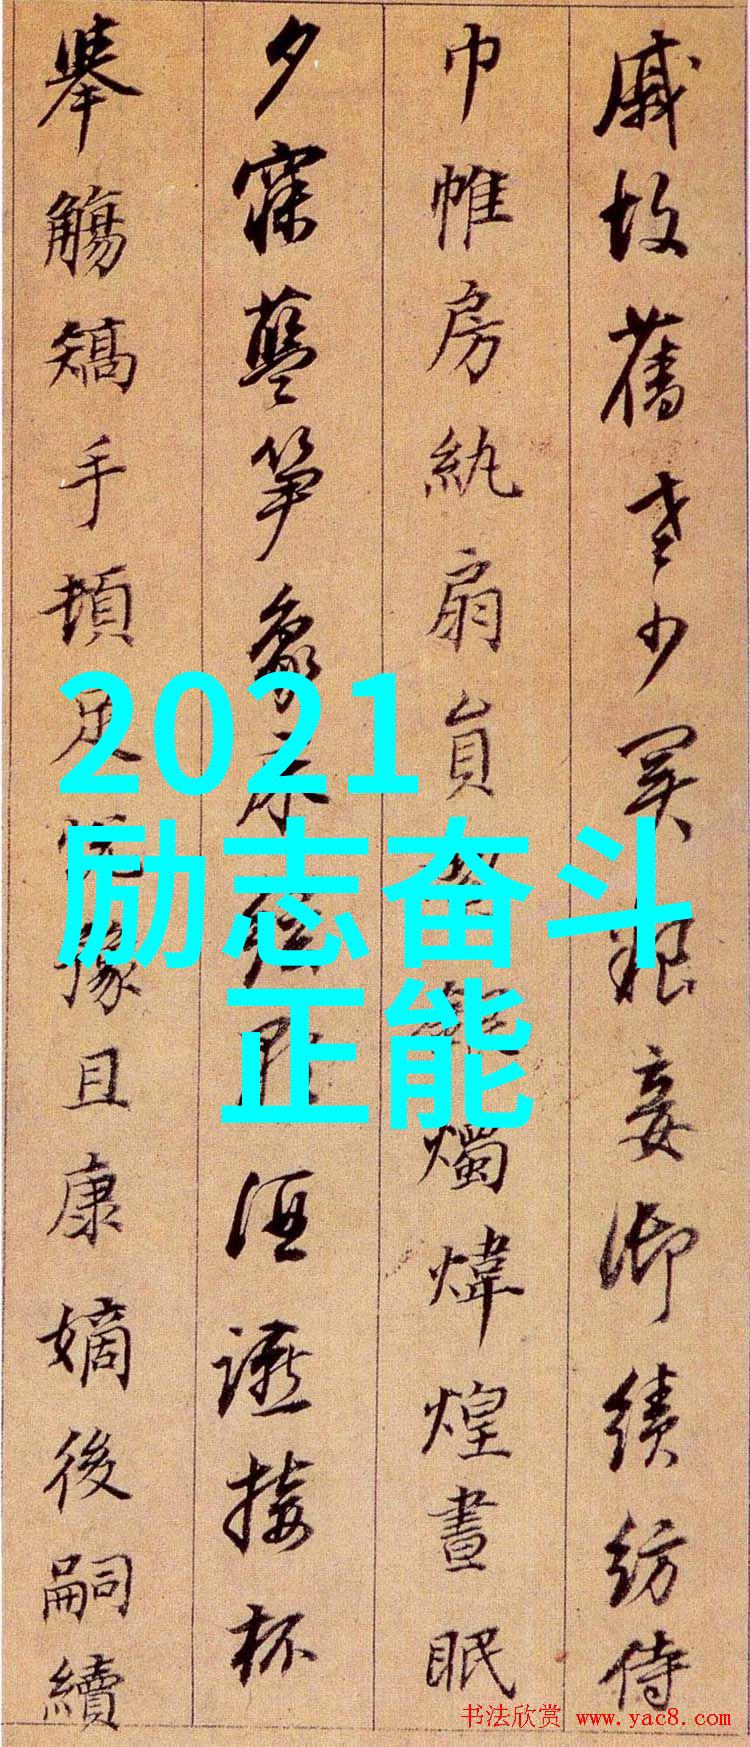 戚故舊老少異粮妾御績紡侍
巾帷房紈扇員銀燭煒煌晝眠
夕寐藍笋象床絃酒讌接杯
舉觴矯手頓足悅豫且康嫡後嗣續
2021
励志奋斗
正能
书法欣赏 www.yac8.com